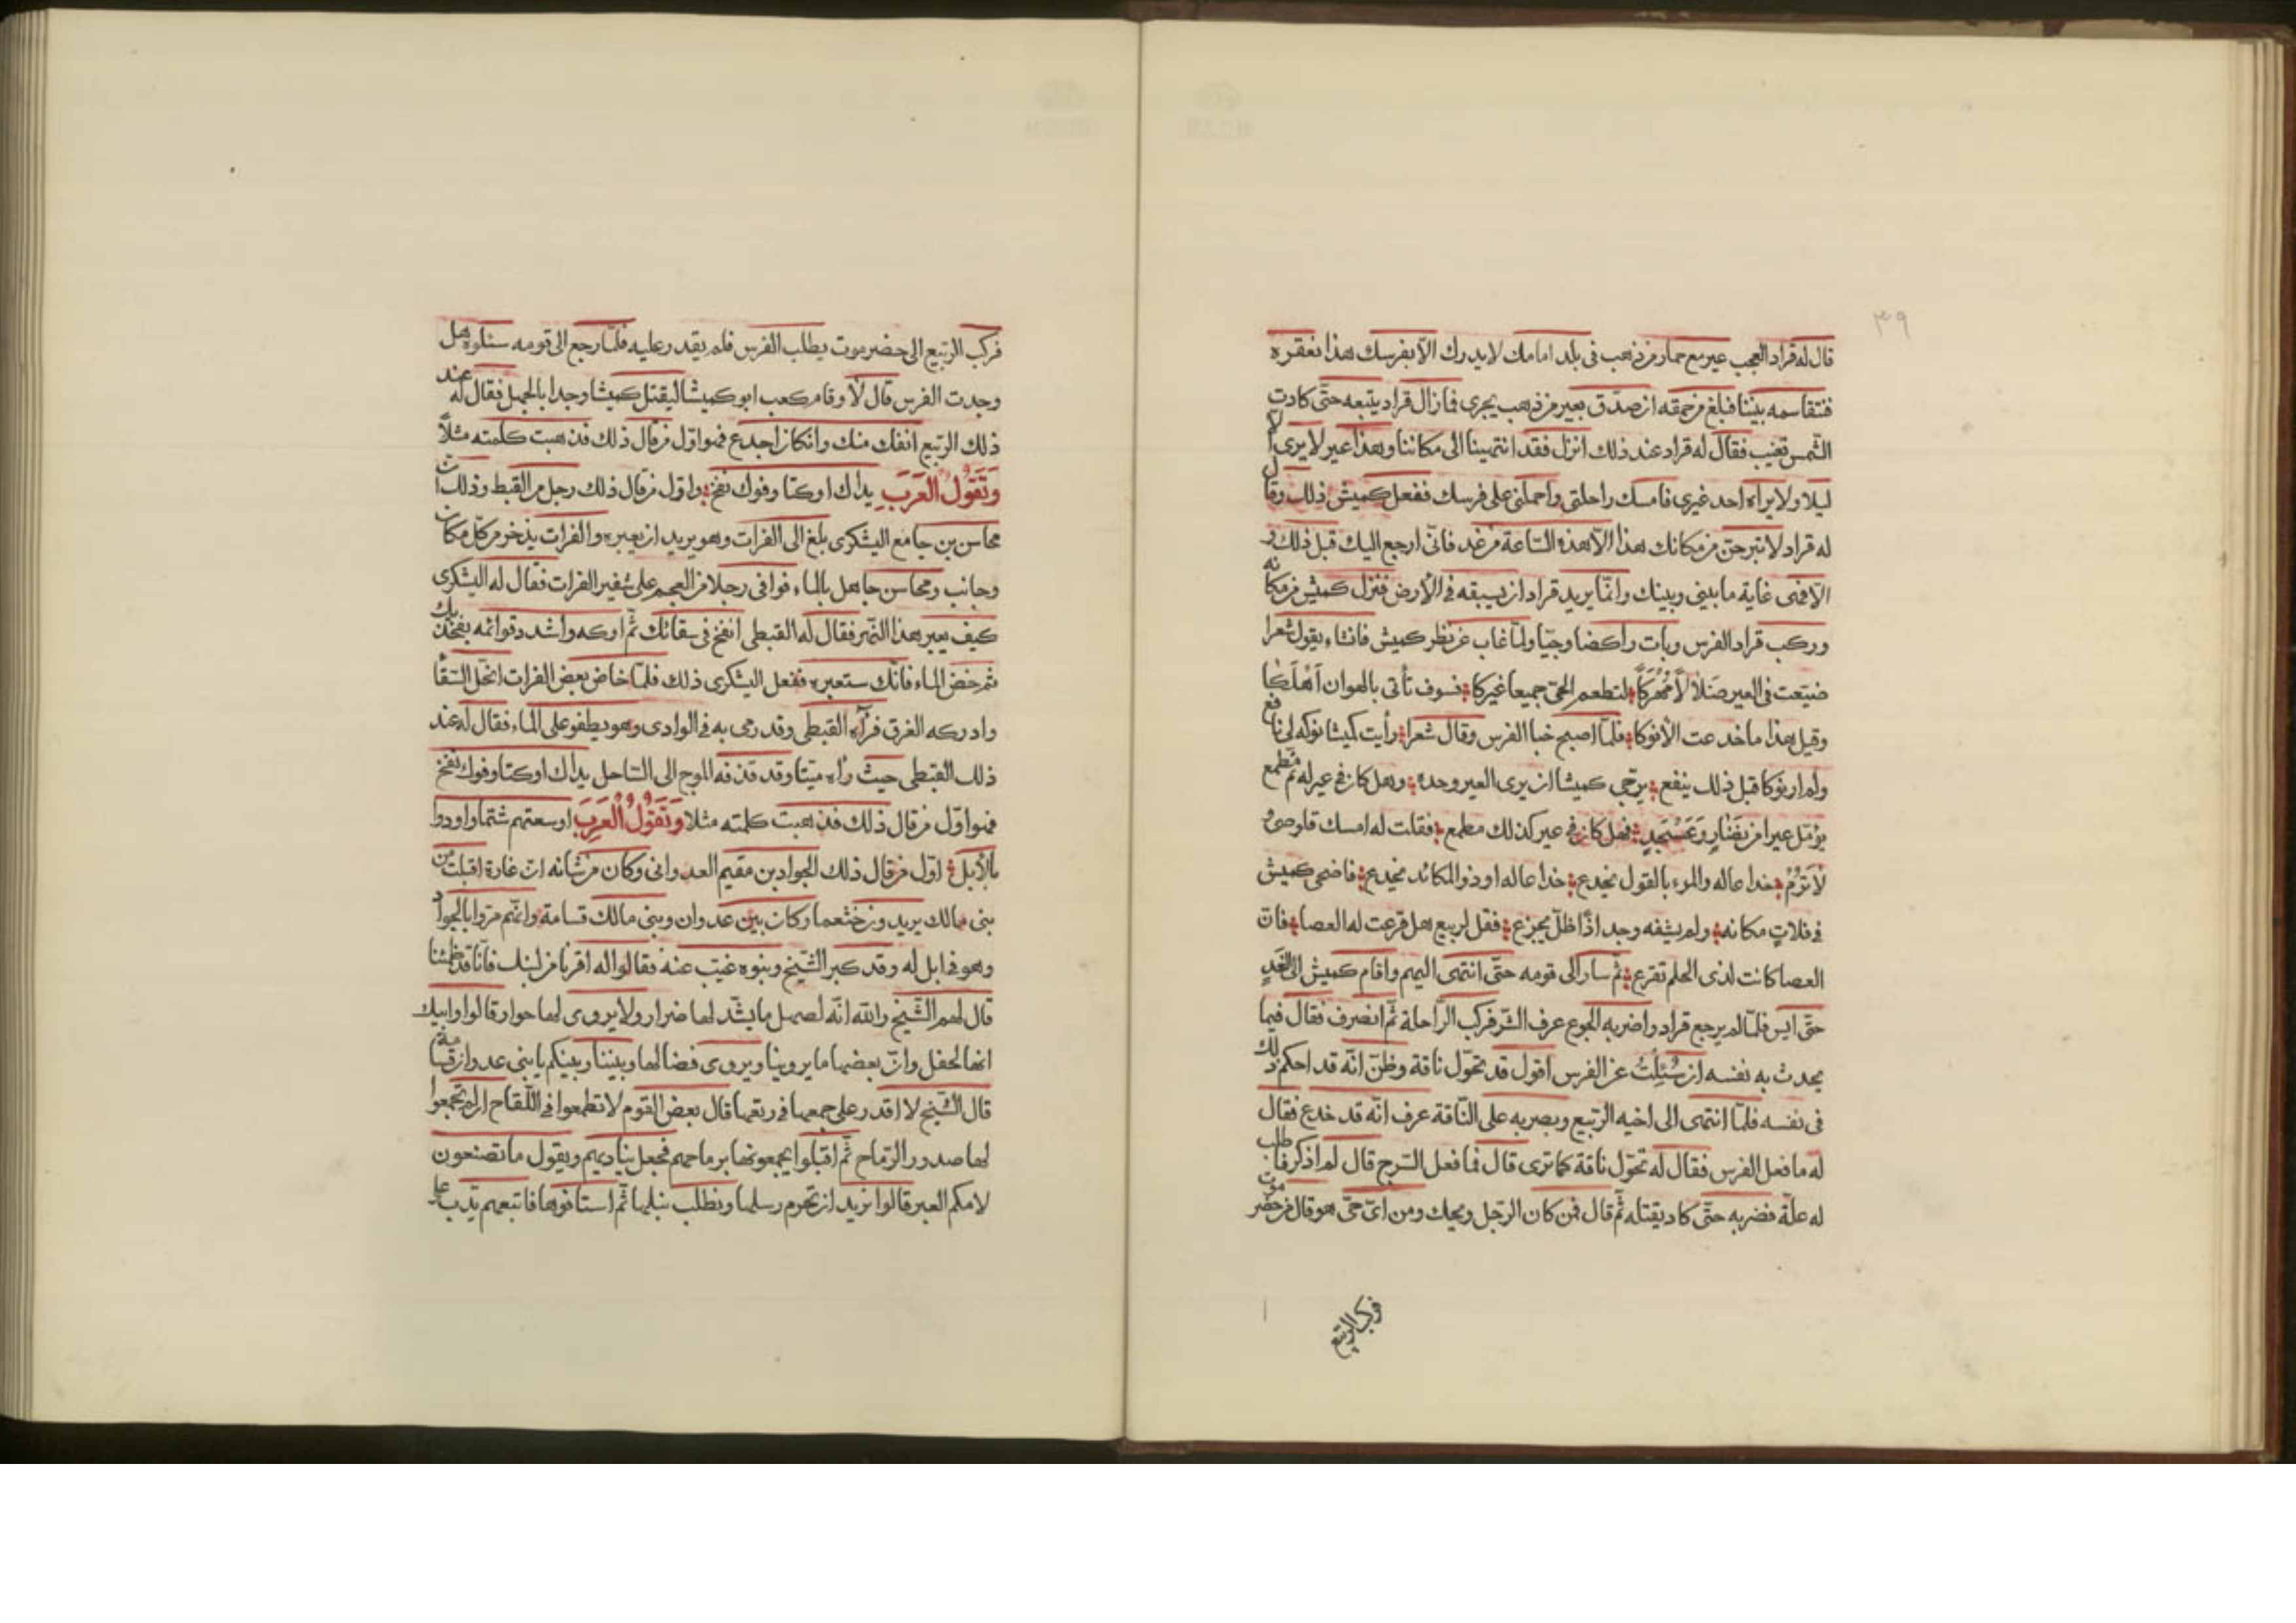 ٣٩
قال له قراد العجب عير مع حمار من ذهب في بلد امامك لا يدرك الّا بفرسك هذا نعقره
فنتقاسمه بيننا فبلغ من حمقه ان صدّق بعير من ذهب يجرى فما زال قراد يتبعه حتّى كادت
الشّمس تغيب فقال له قراد عند ذلك انزل فقد انتهينا الى مكاننا وهذا عير لا يرى الّا
ليلا ولا يراه احد غيرى فامسك راحلتى واحملنى على فرسك ففعل كميش ذلك وقال
له قراد لا تبرحنّ من مكانك هذا الّا هذه السّاعة من غد فانّى ارجع اليك قبل ذلك و
الّا فهى غاية ما بينى وبينك وانّما يريد قراد ان يسبقه فى الأرض فنزل كميش من مكانه
وركب قراد الفرس وبات راكضا وجيّا ولمّا غاب عن نظر كميش فانشاء يقول شعرا
ضيّعت فى العير ضلالاً مُهركا لتطعم الحىّ جميعا غيركا فسوف تأتى بالهوان اهلكا
وقيل هذا ما خدعت الأنوكا فلمّا اصبح خبا الفرس وقال شعرا رأيت كميشا نوكه لى نافع
ولم ار نوكا قبل ذلك ينفع يرجّى كميشا ان يرى العير وحده وهل كان فى عير له ثمّ مطمع
يؤمّل عيرا من نضار وعسجد فهل كان فى عير كذلك مطمع فقلت له امسك قلوصى و
لا ترم خداعا له والمرء بالقول يخدع خداعا له او ذو المكائد يخدع فاضحى كميش
فى فلات مكانه ولم يشفه وجد اذا ظلّ يجزع فقل لربيع هل قرعت له العصا فانّ
العصا كانت لذى الحلم تقرع ثمّ سار الى قومه حتّى انتهى اليهم واقام كميش الى الغد
حتّى ايس فلمّا لم يرجع قراد واضر به الجوع عرف الشّر فركب الرّاحلة ثمّ انصرف فقال فيما
يحدث به نفسه ان سُئِلتُ عن الفرس اقول قد تحوّل ناقة وظنّ انّه قد احكم ذلك
فى نفسه فلمّا انتهى الى اخيه الرّبيع وبصر به على النّاقة عرف انّه قد خدع فقال
له ما فعل الفرس فقال له تحوّل ناقة كما ترى قال فما فعل السّرج قال لم اذكر فاطلب
له علّة فضربه حتّى كاد يقتله ثمّ قال فمن كان الرّجل ويحك ومن اىّ حىّ هو قال من حضرموت
فركب الرّبيع
فركب الرّبيع الى حضرموت يطلب الفرس فلم يقدر عليه فلمّا رجع الى قومه سئلوه هل
وجدت الفرس قال لا وقام كعب ابو كميشا ليقتل كميشا وجدا بالجمل فقال له عند
ذلك الرّبيع انفك منك وان كان اجدع فهو اوّل من قال ذلك فذهبت كلمته مثلاً
وَتَقُولُ العَرَبُ يداك اوكتا وفوك نفخ واوّل من قال ذلك رجل من القبط وذلك ان
محاسن بن جامع اليشكرى بلغ الى الفرات وهو يريد ان يعبره والفرات يذخر من كلّ مكان
وجانب ومحاسن جاهل بالماء فوافى رجلا من العجم على شفير الفرات فقال له اليشكرى
كيف يعبر هذا النّهر فقال له القبطى انفخ فى سقائك ثمّ اوكه واشدد قوائمه بفخذيك
ثم خض الماء فانّك ستعبره ففعل اليشكرى ذلك فلمّا خاض بعض الفرات انحلّ السّقاء
وادركه الغرق فرآه القبطى وقد رمى به فى الوادى وهو يطفو على الماء فقال له عند
ذلك القبطى حيث رأه ميّتا وقد قذفه الموج الى السّاحل يداك اوكتا وفوك نفخ
فهو اوّل من قال ذلك فذهبت كلمته مثلا وَتَقُولُ الْعَرَبُ اوسعتهم شتما واودوا
بالأبل اوّل من قال ذلك الجواد بن مقيم العدوانى وكان من شانه انّ غارة اقبلت من
بنى مالك يريدون خثعما وكان بين عدوان وبنى مالك قسامة وانّهم مرّوا بالجواد
وهو فى ابل له وقد كبر الشّيخ وبنوه غيّب عنه فقالوا له اقرنا من لبنك فانّا قد ظمئنا
قال لهم الشّيخ والله انّه لصهل ما يشدّ لها ضرار ولا يروى لها حوار قالوا وابيك
انها لحفل وانّ بعضها ما يروينا ويروى فضالها وبيننا وبينكم يا بنى عدوان قسامة
قال الشّيخ لا اقدر على جمعها فى ربعها قال بعض القوم لا تطمعوا فى اللّقاح ان لم تجمعوا
لها صدور الرّماح ثمّ اقبلوا يجمعونها برماحهم فجعل يناديهم ويقول ما تصنعون
لامكم العبر قالوا نريد ان تحرم رسلها ونطلب نبلها ثمّ استاقوها فاتبعهم يدّب على